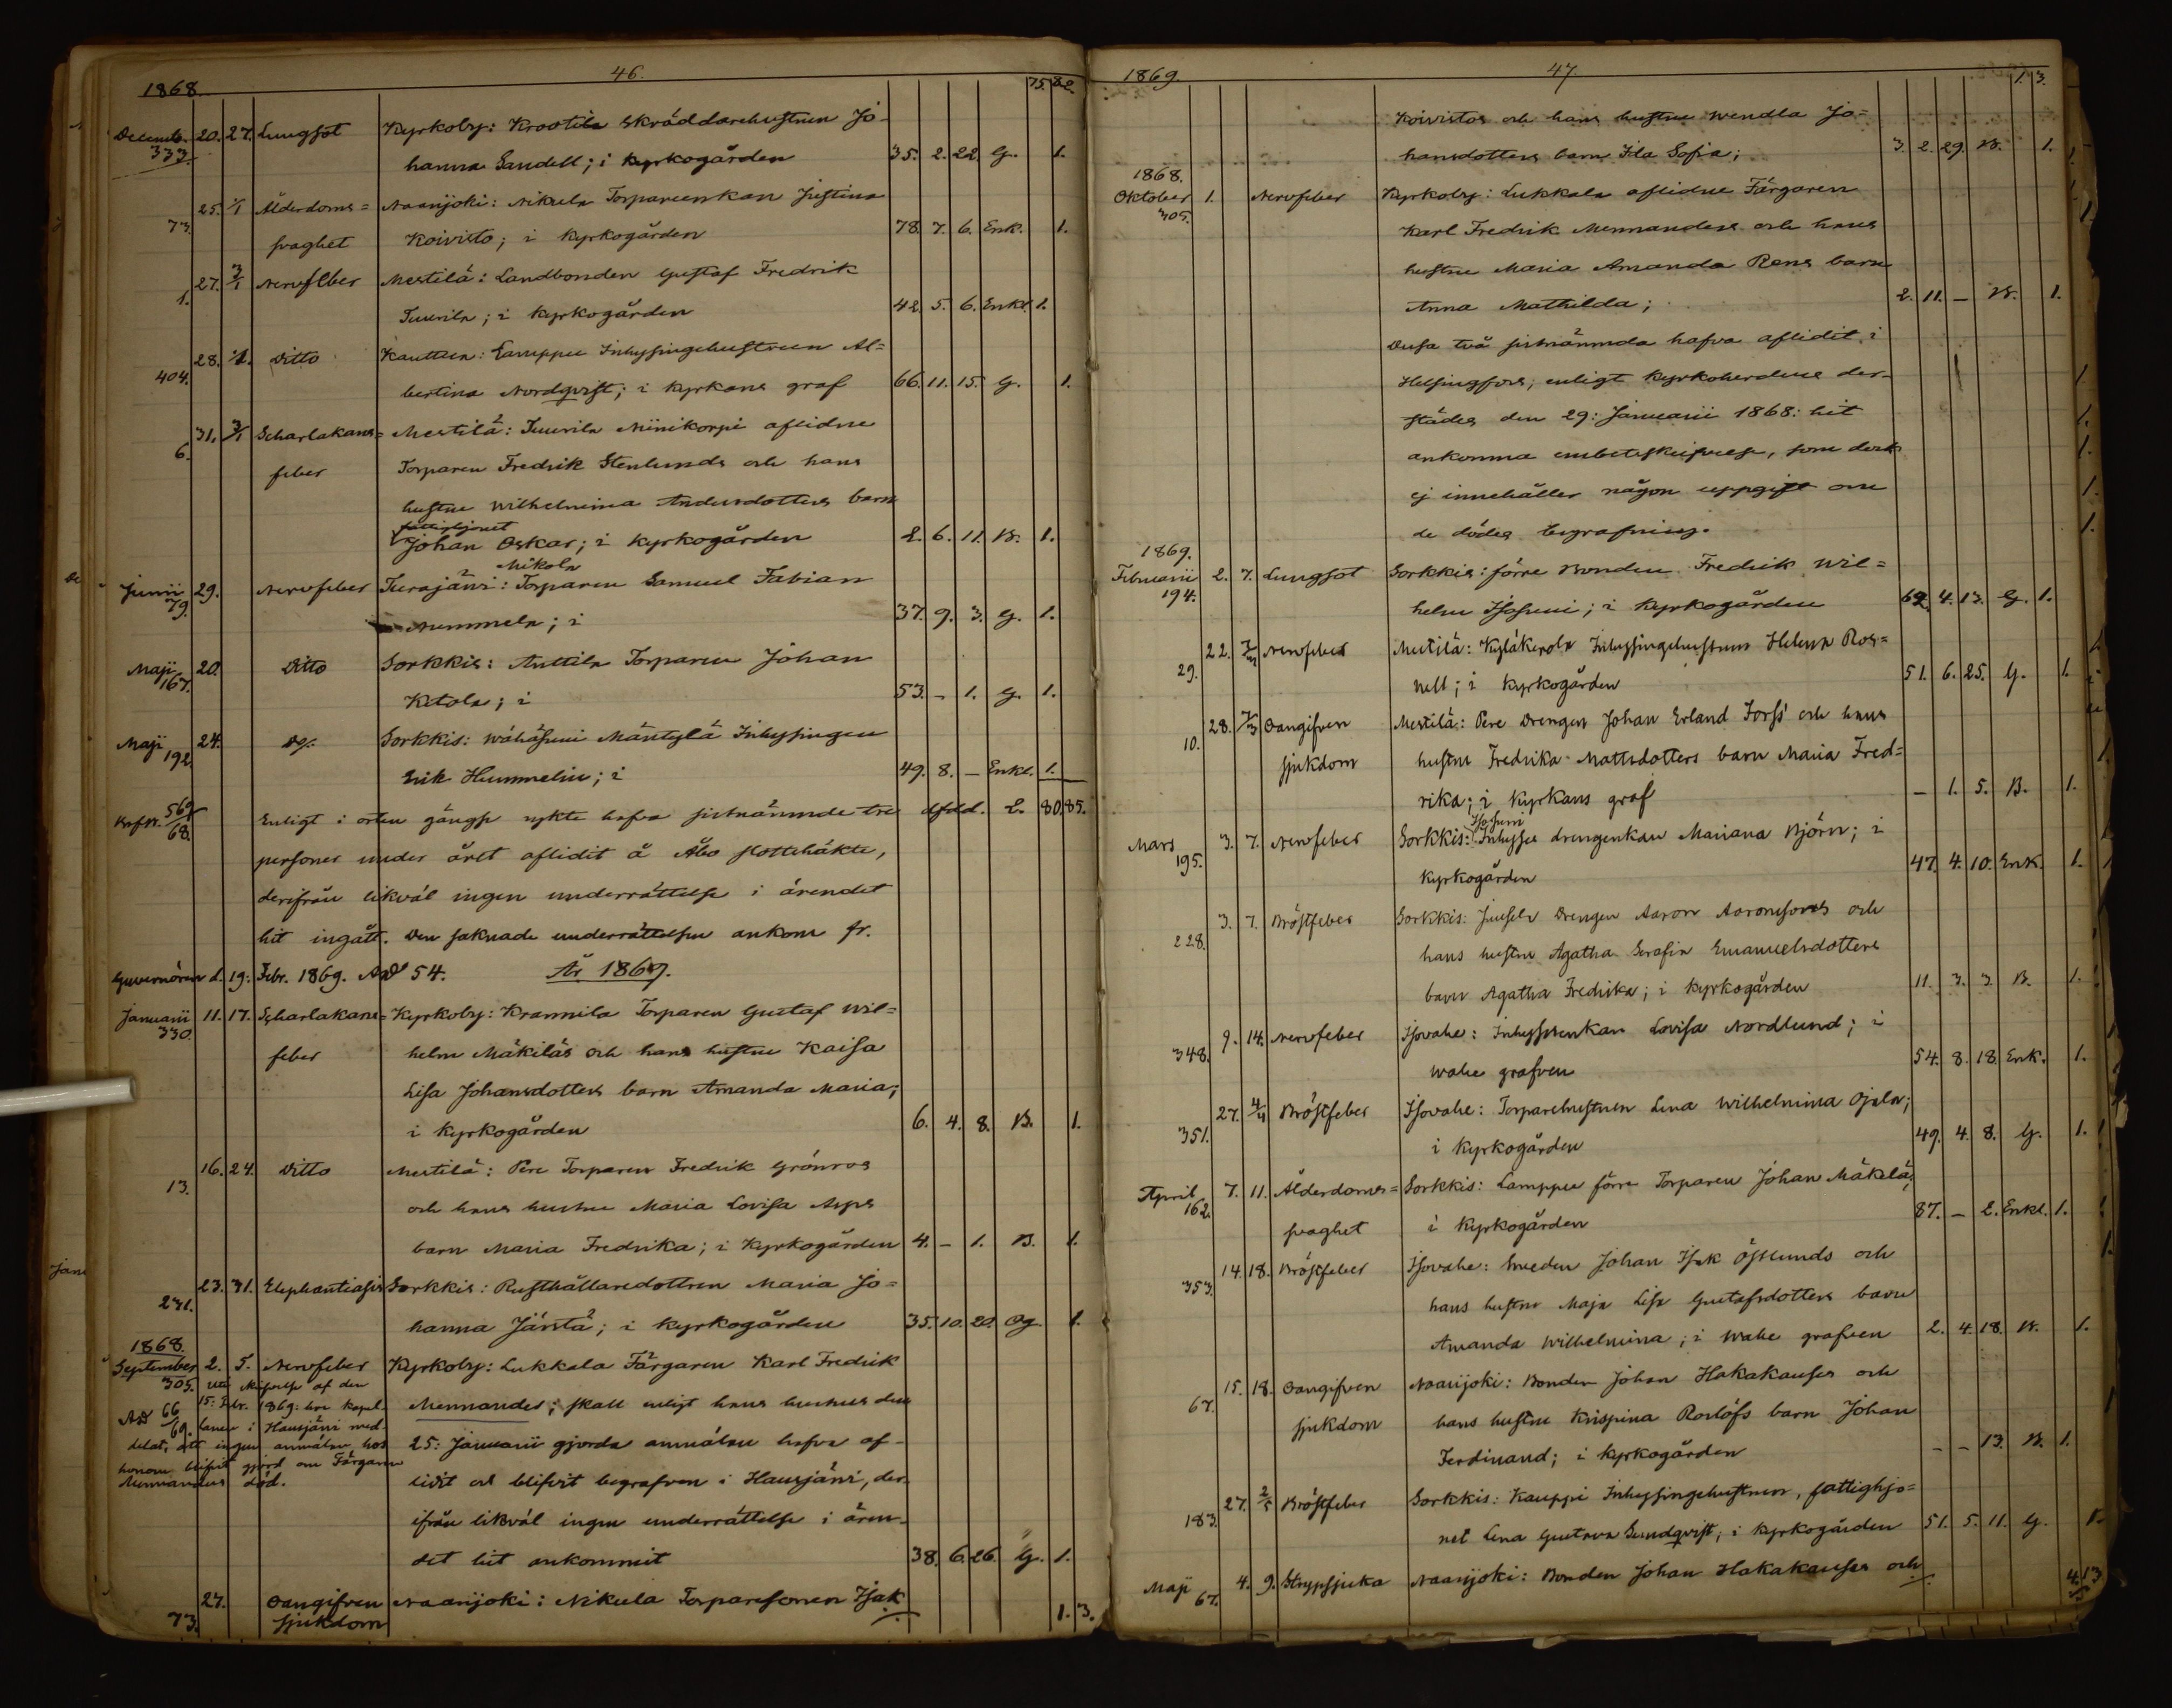 1868. 46. 75. 82.
Decemb. 20. 27. Lungsot Kyrkoby: Krootila skräddarehustrun Jo-
333. hanna Sandell; i kyrkogården 35. 2. 22. G. 1.
25. 1/1 Ålderdoms= Naarijoki: Nikula Torpareenkan Justina
73. svaghet Koivisto; i kyrkogården 78. 7. 6. Enk. 1.
27. 3/1 Nervfeber Mestilä: Landbonden Gustaf Fredrik
1. Tuurila; i kyrkogården 42. 5. 6. Enkl. 1.
28. 1/1. Ditto Kauttua: Lamppu Inhysingehustrun Al=
404. bertina Nordqvist; i kyrkans graf 66. 11. 15. G. 1.
31. 3/1 Scharlakans= Mestilä: Tuurila Niinikorpi aflidne
6. feber Torparen Fredrik Stenlunds och hans
hustru Wilhelmina Andersdotters barn
fattighjonet
Johan Oskar; i kyrkogården 2. 6. 11. B. 1.
Mikola
Junii 29. Nervfeber Turajärvi: Torparen Samuel Fabian
79. Nummela; i 37. 9. 3. G. 1.
Maji 20. Ditto Sorkkis: Anttila Torparen Johan
167. Ketola; i 53. - 1. G. 1.
Maji 24. Do. Sorkkis: Wähäsuni Mäntylä Inhysingen
192. Erik Hummelin; i 49. 8. - Enkl. 1.
569/68. Enligt i orten gängse rykte hafva sistnämnde tre dfdd. 2. 80. 85.
personer under året aflidit å Åbo slottshäkte,
derifrån likväl ingen underrättelse i ärendet
hit ingått. Den saknade underrättelsen ankom fr.
Guvernören d. 19: Febr. 1869. AD 54. År 1869.
Januarii 11. 17. Scharlakans= Kyrkoby: Krannila Torparen Gustaf Wil=
330. feber helm Mäkiläs och hans hustru Kaisa
Lisa Johansdotters barn Amanda Maria;
i kyrkogården 6. 4. 8. B. 1.
16. 24. Ditto Mestilä: Pere Torparen Fredrik Grönros
13. och hans hustru Maria Lovisa Arps
barn Maria Fredrika; i kyrkogården 4. - 1. B. 1.
23. 31. Elephantiasis Sorkkis: Rusthållaredottren Maria Jo=
231. hanna Järstä; i kyrkogården 35. 10. 20. Og. 1.
1868.
September 2. 5. Nervfeber Kyrkoby: Lukkala Färgaren Karl Fredrik
305. Uti skrifvelse af den
AD 66/69. 15: Febr. 1869: har kapel- Mennander; skall enligt hans hustrus den
lanen i Hausjärvi med-
delat, att ingen anmälan hos 25: Januarii gjorda anmälan hafva af-
honom blifvit gjord om Färgaren
Mennanders död. lidit och blifvit begrafven i Hausjärvi, der-
ifrån likväl ingen underrättelse i ären-
det hit ankommit 38. 6. 26. G. 1.
27. Oangifven Naarijoki: Nikula Torparesonen Isak
73. sjukdom 1. 3.
1869. 47. 1. 3.
Koivistos och hans hustru Wendla Jo=
hansdotters barn Ida Sofia; 3. 2. 29. B. 1.
1868.
Oktober 1. Nervfeber Kyrkoby: Lukkala aflidne Färgaren
305. Karl Fredrik Mennanders och hans
hustru Maria Amanda Rens barn
Anna Mathilda; 2. 11. - B. 1.
Dessa två sistnämnda hafva aflidit i
Helsingfors, enligt kyrkoherdens der-
städes den 29: Januarii 1868: hit
ankomna embetsskrifvelse, som dock
ej innehåller någon uppgift om
de dödes begrafning.
1869.
Februarii 2. 7. Lungsot Sorkkis: förre Bonden Fredrik Wil=
194. helm Isosuni; i kyrkogården 62. 4. 13. G. 1.
22. 7/3 Nervfeber Mestilä: Kyläkerola Inhysingehustrun Helena Ros=
29. nell; i kyrkogården 51. 6. 25. G. 1.
28. 7/3 Oangifven Mestilä: Pere Drengen Johan Erland Forss' och hans
10. sjukdom hustru Fredrika Mattsdotters barn Maria Fred=
rika; i kyrkans graf - 1. 5. B. 1.
Isosuni
Mars 3. 7. Nervfeber Sorkkis: Inhyses drengenkan Mariana Björn; i
195. kyrkogården 47. 4. 10. Enk. 1.
3. 7. Bröstfeber Sorkkis: Juusela Drengen Aaron Aaronssons och
228. hans hustru Agatha Serafia Emanuelsdotters
barn Agatha Fredrika; i kyrkogården 11. 3. 3. B. 1.
9. 14. Nervfeber Isovahe: Inhysesenkan Lovisa Nordlund; i
348. Wahe grafven 54. 8. 18. Enk. 1.
27. 4/4 Bröstfeber Isovahe: Torparehustrun Lena Wilhelmina Ojala;
351. i kyrkogården 49. 4. 8. G. 1.
April 7. 11. Ålderdoms= Sorkkis: Lamppu förre Torparen Johan Mäkelä;
162. svaghet i kyrkogården 87. - 2. Enkl. 1.
14. 18. Bröstfeber Isovahe: Smeden Johan Isak Östlunds och
353. hans hustru Maja Lisa Gustafsdotters barn
Amanda Wilhelmina; i Wahe grafven 2. 4. 18. B. 1.
15. 18. Oangifven Naarijoki: Bonden Johan Hakakauses och
67. sjukdom hans hustru Krispina Roslöfs barn Johan
Ferdinand; i kyrkogården - - 13. B. 1.
27. 2/5 Bröstfeber Sorkkis: Kauppi Inhysingehustrun, fattighjo=
183. net Lena Gustava Sundqvist; i kyrkogården 51. 5. 11. G. 1.
Maji 4. 9. Strypsjuka Naarijoki: Bonden Johan Hakakauses och
67. 4. 13